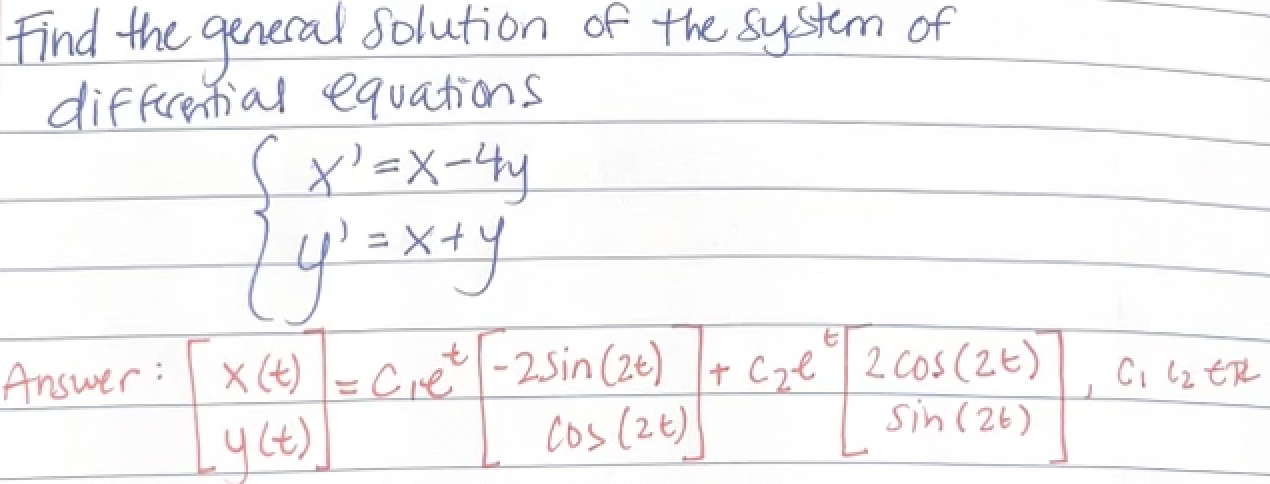 Find the general solution of the system of
differential equations
{ x' = x - 4y
y' = x + y
Answer: [x(t) y(t)] = C₁e^t [-2sin(2t) cos(2t)] + C₂e^t [2cos(2t) sin(2t)], C₁ C₂ ∈ ℝ